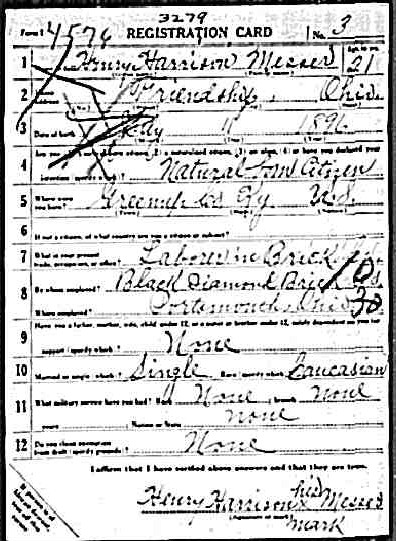 3279
Form 1 4578 REGISTRATION CARD No. 3
1 Henry Harrison Messer Age, in yrs. 21
2 Friendship, Ohio
3 Date of birth May 11 1896
4 Natural born Citizen
5 Greenup Co Ky U.S.
6 If not a citizen, of what country are you a citizen or subject?
7 What is your present trade, occupation, or office? Laborer in Brick
8 By whom employed? Black Diamond Brick Co.
Where employed? Portsmouth, Ohio 30
9 Have you a father, mother, wife, child under 12, or a sister or brother under 12, solely dependent on you for
support (specify which)? None
10 Married or single (which)? Single Race (specify which)? Caucasian
11 What military service have you had? Rank None branch None
years Nation or State None
12 Do you claim exemption
from draft (specify grounds)? None
I affirm that I have verified above answers and that they are true.
Henry Harrison his x Messer
mark